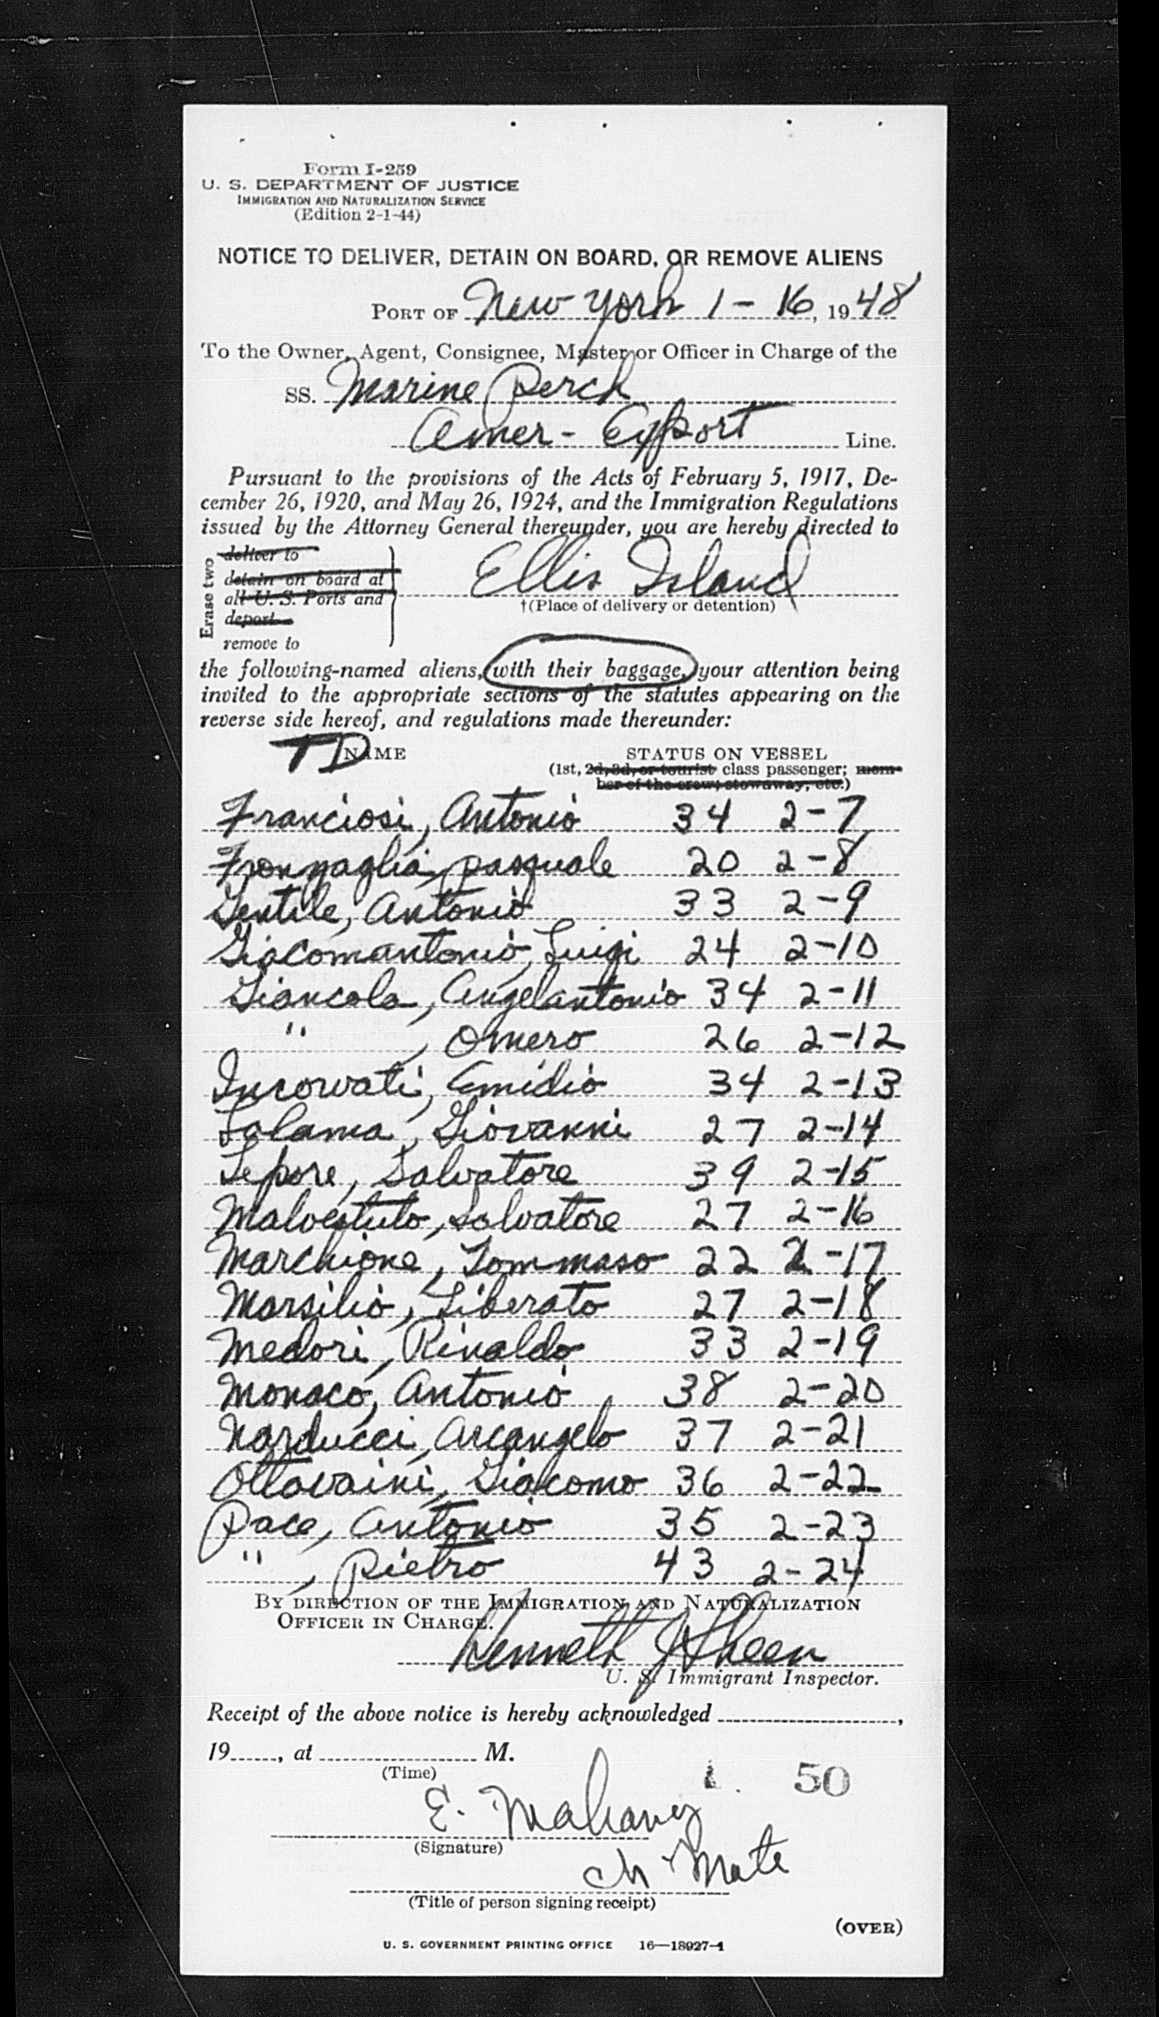 Form I-259
U. S. DEPARTMENT OF JUSTICE
IMMIGRATION AND NATURALIZATION SERVICE
(Edition 2-1-44)
NOTICE TO DELIVER, DETAIN ON BOARD, OR REMOVE ALIENS
PORT OF New York 1-16, 1948
To the Owner, Agent, Consignee, Master or Officer in Charge of the
SS. Marine Perch
Amer-Export Line.
Pursuant to the provisions of the Acts of February 5, 1917, De-
cember 26, 1920, and May 26, 1924, and the Immigration Regulations
issued by the Attorney General thereunder, you are hereby directed to
Erase two
deliver to
detain on board at
all U. S. Ports and
deport
remove to
Ellis Island
†(Place of delivery or detention)
the following-named aliens, with their baggage, your attention being
invited to the appropriate sections of the statutes appearing on the
reverse side hereof, and regulations made thereunder:
TD NAME STATUS ON VESSEL
(1st, 2d, 3d, or tourist class passenger; mem-
ber of the crew; stowaway, etc.)
Franciosi, Antonio 34 2-7
pasquale 20 2-8
Gentile, Antonio 33 2-9
Giacomantonio, Luigi 24 2-10
Giancola, Angelantonio 34 2-11
" , Omero 26 2-12
Incorvati, Emidio 34 2-13
Lalama, Giovanni 27 2-14
Lepore, Salvatore 39 2-15
Malvestuto, Salvatore 27 2-16
Marchione, Tommaso 22 2-17
Marsilio, Liberato 27 2-18
Medori, Rinaldo 33 2-19
Monaco, Antonio 38 2-20
Narducci, Arcangelo 37 2-21
Ottavaini, Giacomo 36 2-22
Pace, Antonio 35 2-23
" , Pietro 43 2-24
BY DIRECTION OF THE IMMIGRATION AND NATURALIZATION
OFFICER IN CHARGE.
Kenneth J Sheen
U. S. Immigrant Inspector.
Receipt of the above notice is hereby acknowledged ,
19 , at M.
(Time)
50
E. Mahaney
(Signature)
Ch Mate
(Title of person signing receipt)
(OVER)
U. S. GOVERNMENT PRINTING OFFICE 16—18927-1